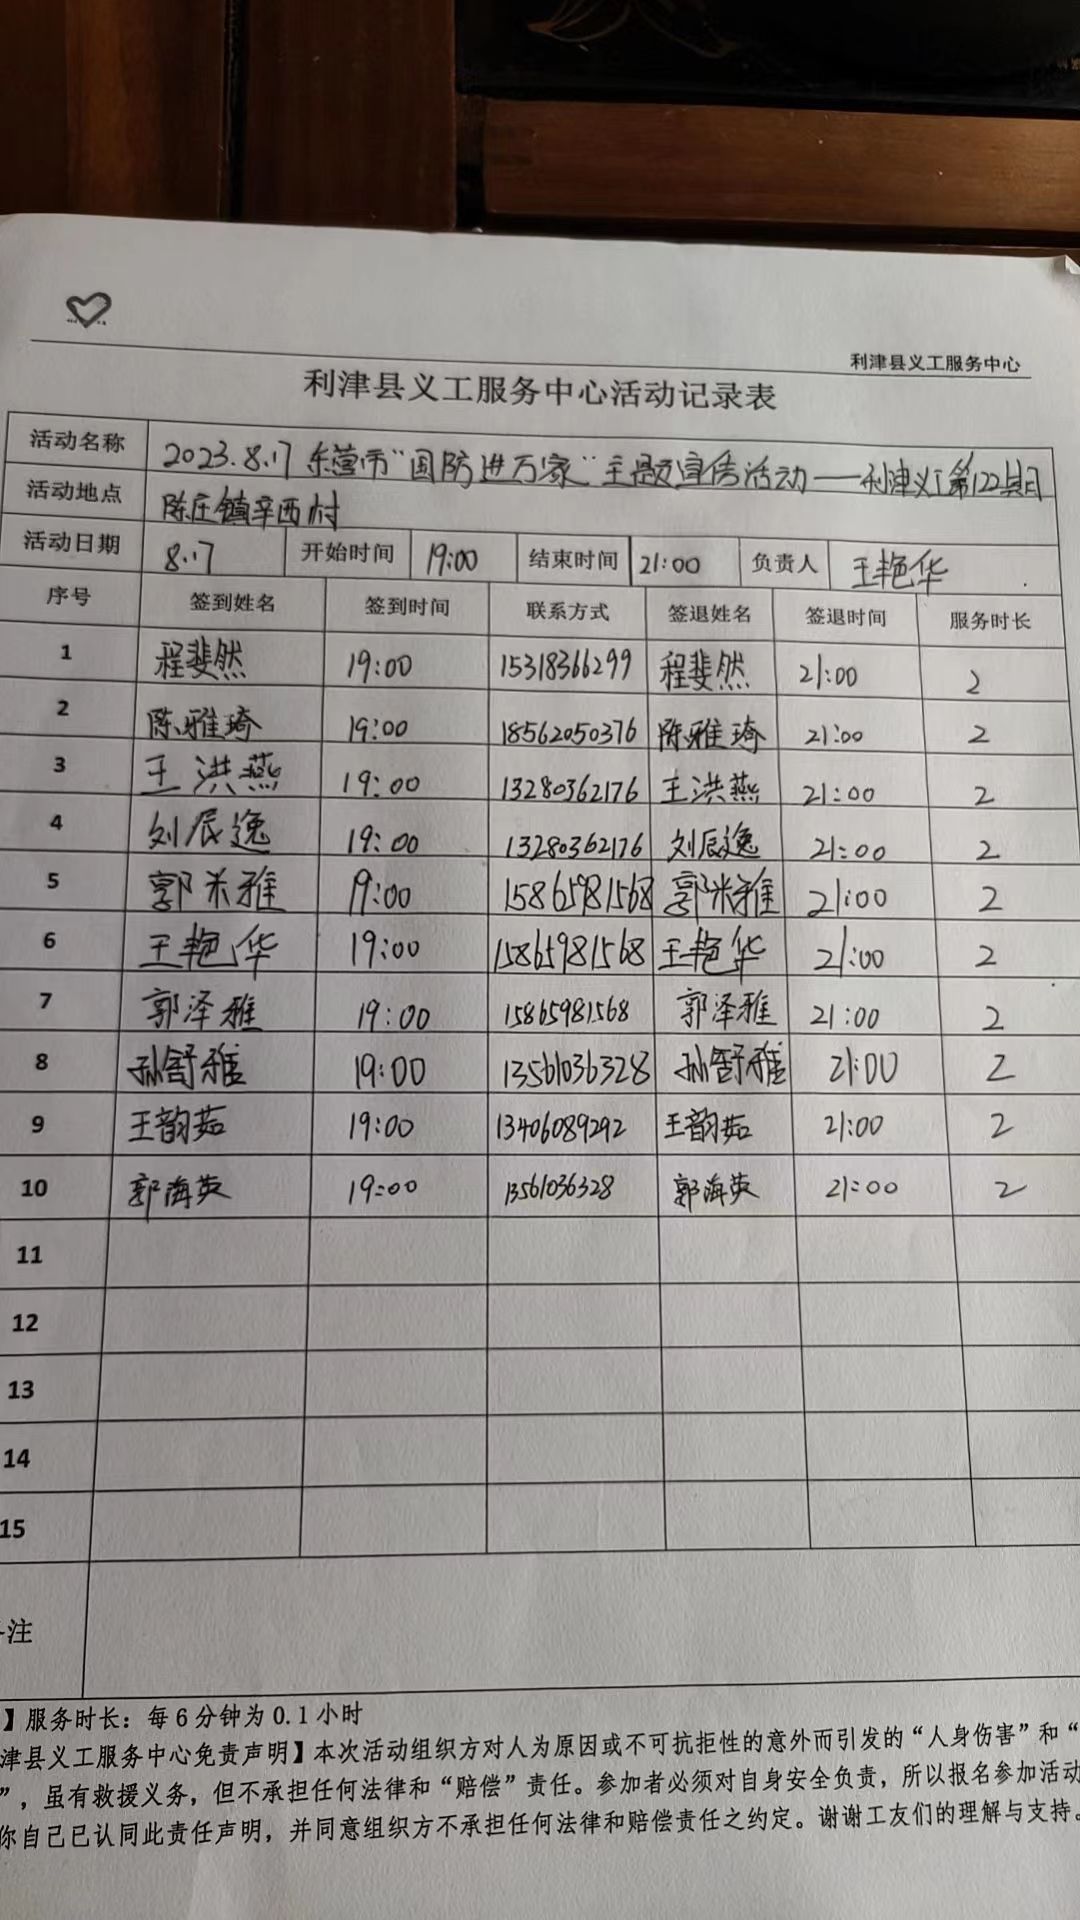 利津县义工服务中心
利津县义工服务中心活动记录表
活动名称 2023.8.17 东营市“国防进万家”主题宣传活动——利津义工第122期
活动地点 陈庄镇辛西村
活动日期 8.17 开始时间 19:00 结束时间 21:00 负责人 王艳华
序号 签到姓名 签到时间 联系方式 签退姓名 签退时间 服务时长
1 程斐然 19:00 15318366299 程斐然 21:00 2
2 陈雅琦 19:00 18562050376 陈雅琦 21:00 2
3 王洪燕 19:00 13280362176 王洪燕 21:00 2
4 刘辰逸 19:00 13280362176 刘辰逸 21:00 2
5 郭米雅 19:00 15865981568 郭米雅 21:00 2
6 王艳华 19:00 15865981568 王艳华 21:00 2
7 郭泽雅 19:00 15865981568 郭泽雅 21:00 2
8 孙舒雅 19:00 13561036328 孙舒雅 21:00 2
9 王韵茹 19:00 13406089292 王韵茹 21:00 2
10 郭海英 19:00 13561036328 郭海英 21:00 2
11
12
13
14
15
注
】服务时长：每6分钟为0.1小时
津县义工服务中心免责声明】本次活动组织方对人为原因或不可抗拒性的意外而引发的“人身伤害”和“
”，虽有救援义务，但不承担任何法律和“赔偿”责任。参加者必须对自身安全负责，所以报名参加活动
你自己已认同此责任声明，并同意组织方不承担任何法律和赔偿责任之约定。谢谢工友们的理解与支持。